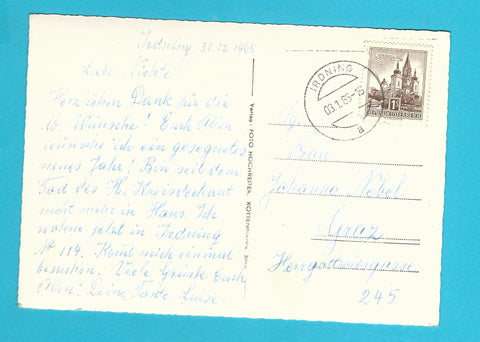 Irdning 31.12.1965
Liebe Nichte!
Herzlichen Dank für die
lb. Wünsche! Euch Allen
wünsche ich ein gesegnetes
neues Jahr! Bin seit dem
Tod des H. Kreisdechant
nicht mehr in Haus. Ich
wohne jetzt in Irdning
Nr 114. Kommt mich einmal
besuchen. Viele Grüsse Euch
Allen! Deine Tante Luise.
Verlag FOTO HOCHREITER, ROTTENMANN, Stmk.
IRDNING
03.1.65-16
a
REPUBLIK ÖSTERREICH
Frau
Johanna Nebel
Graz
Herrgottwiesgasse
245